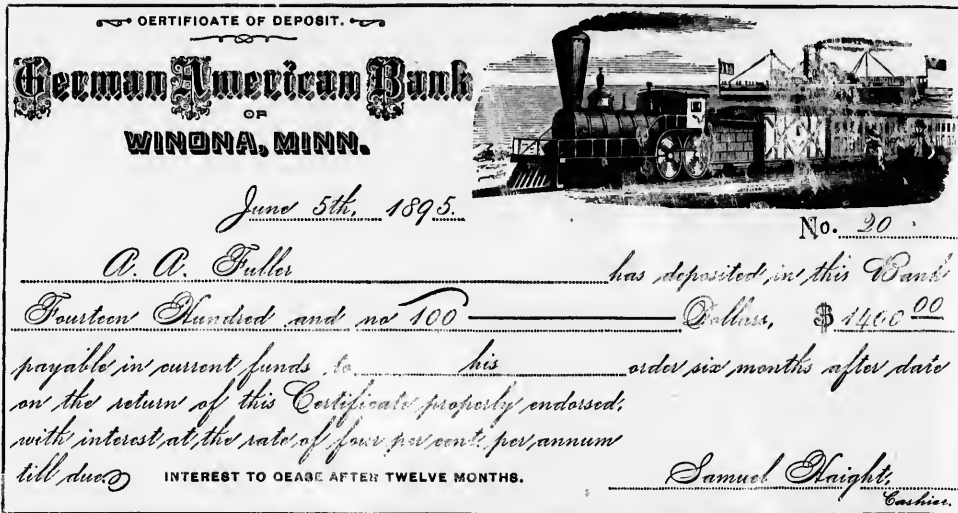 CERTIFICATE OF DEPOSIT.
German American Bank
OF
WINONA, MINN.
June 5th, 1895.
No. 20
A. A. Fuller has deposited in this Bank
Fourteen Hundred and no 100 Dollars, $ 1400 00
payable in current funds to his order six months after date
on the return of this Certificate properly endorsed,
with interest at the rate of four per cent, per annum
till due. INTEREST TO CEASE AFTER TWELVE MONTHS.
Samuel Haight,
Cashier.